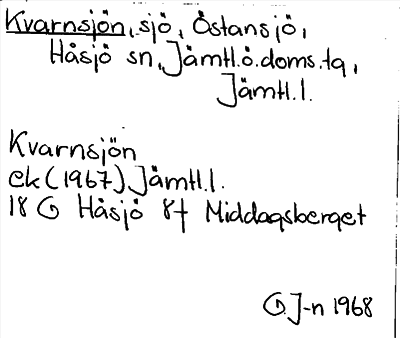 Kvarnsjön, sjö, Östansjö,
Håsjö sn, Jämtl.ö.doms.tg,
Jämtl.l.
Kvarnsjön
ek (1967) Jämtl.l.
18 G Håsjö 8f Middagsberget
G. J-n 1968